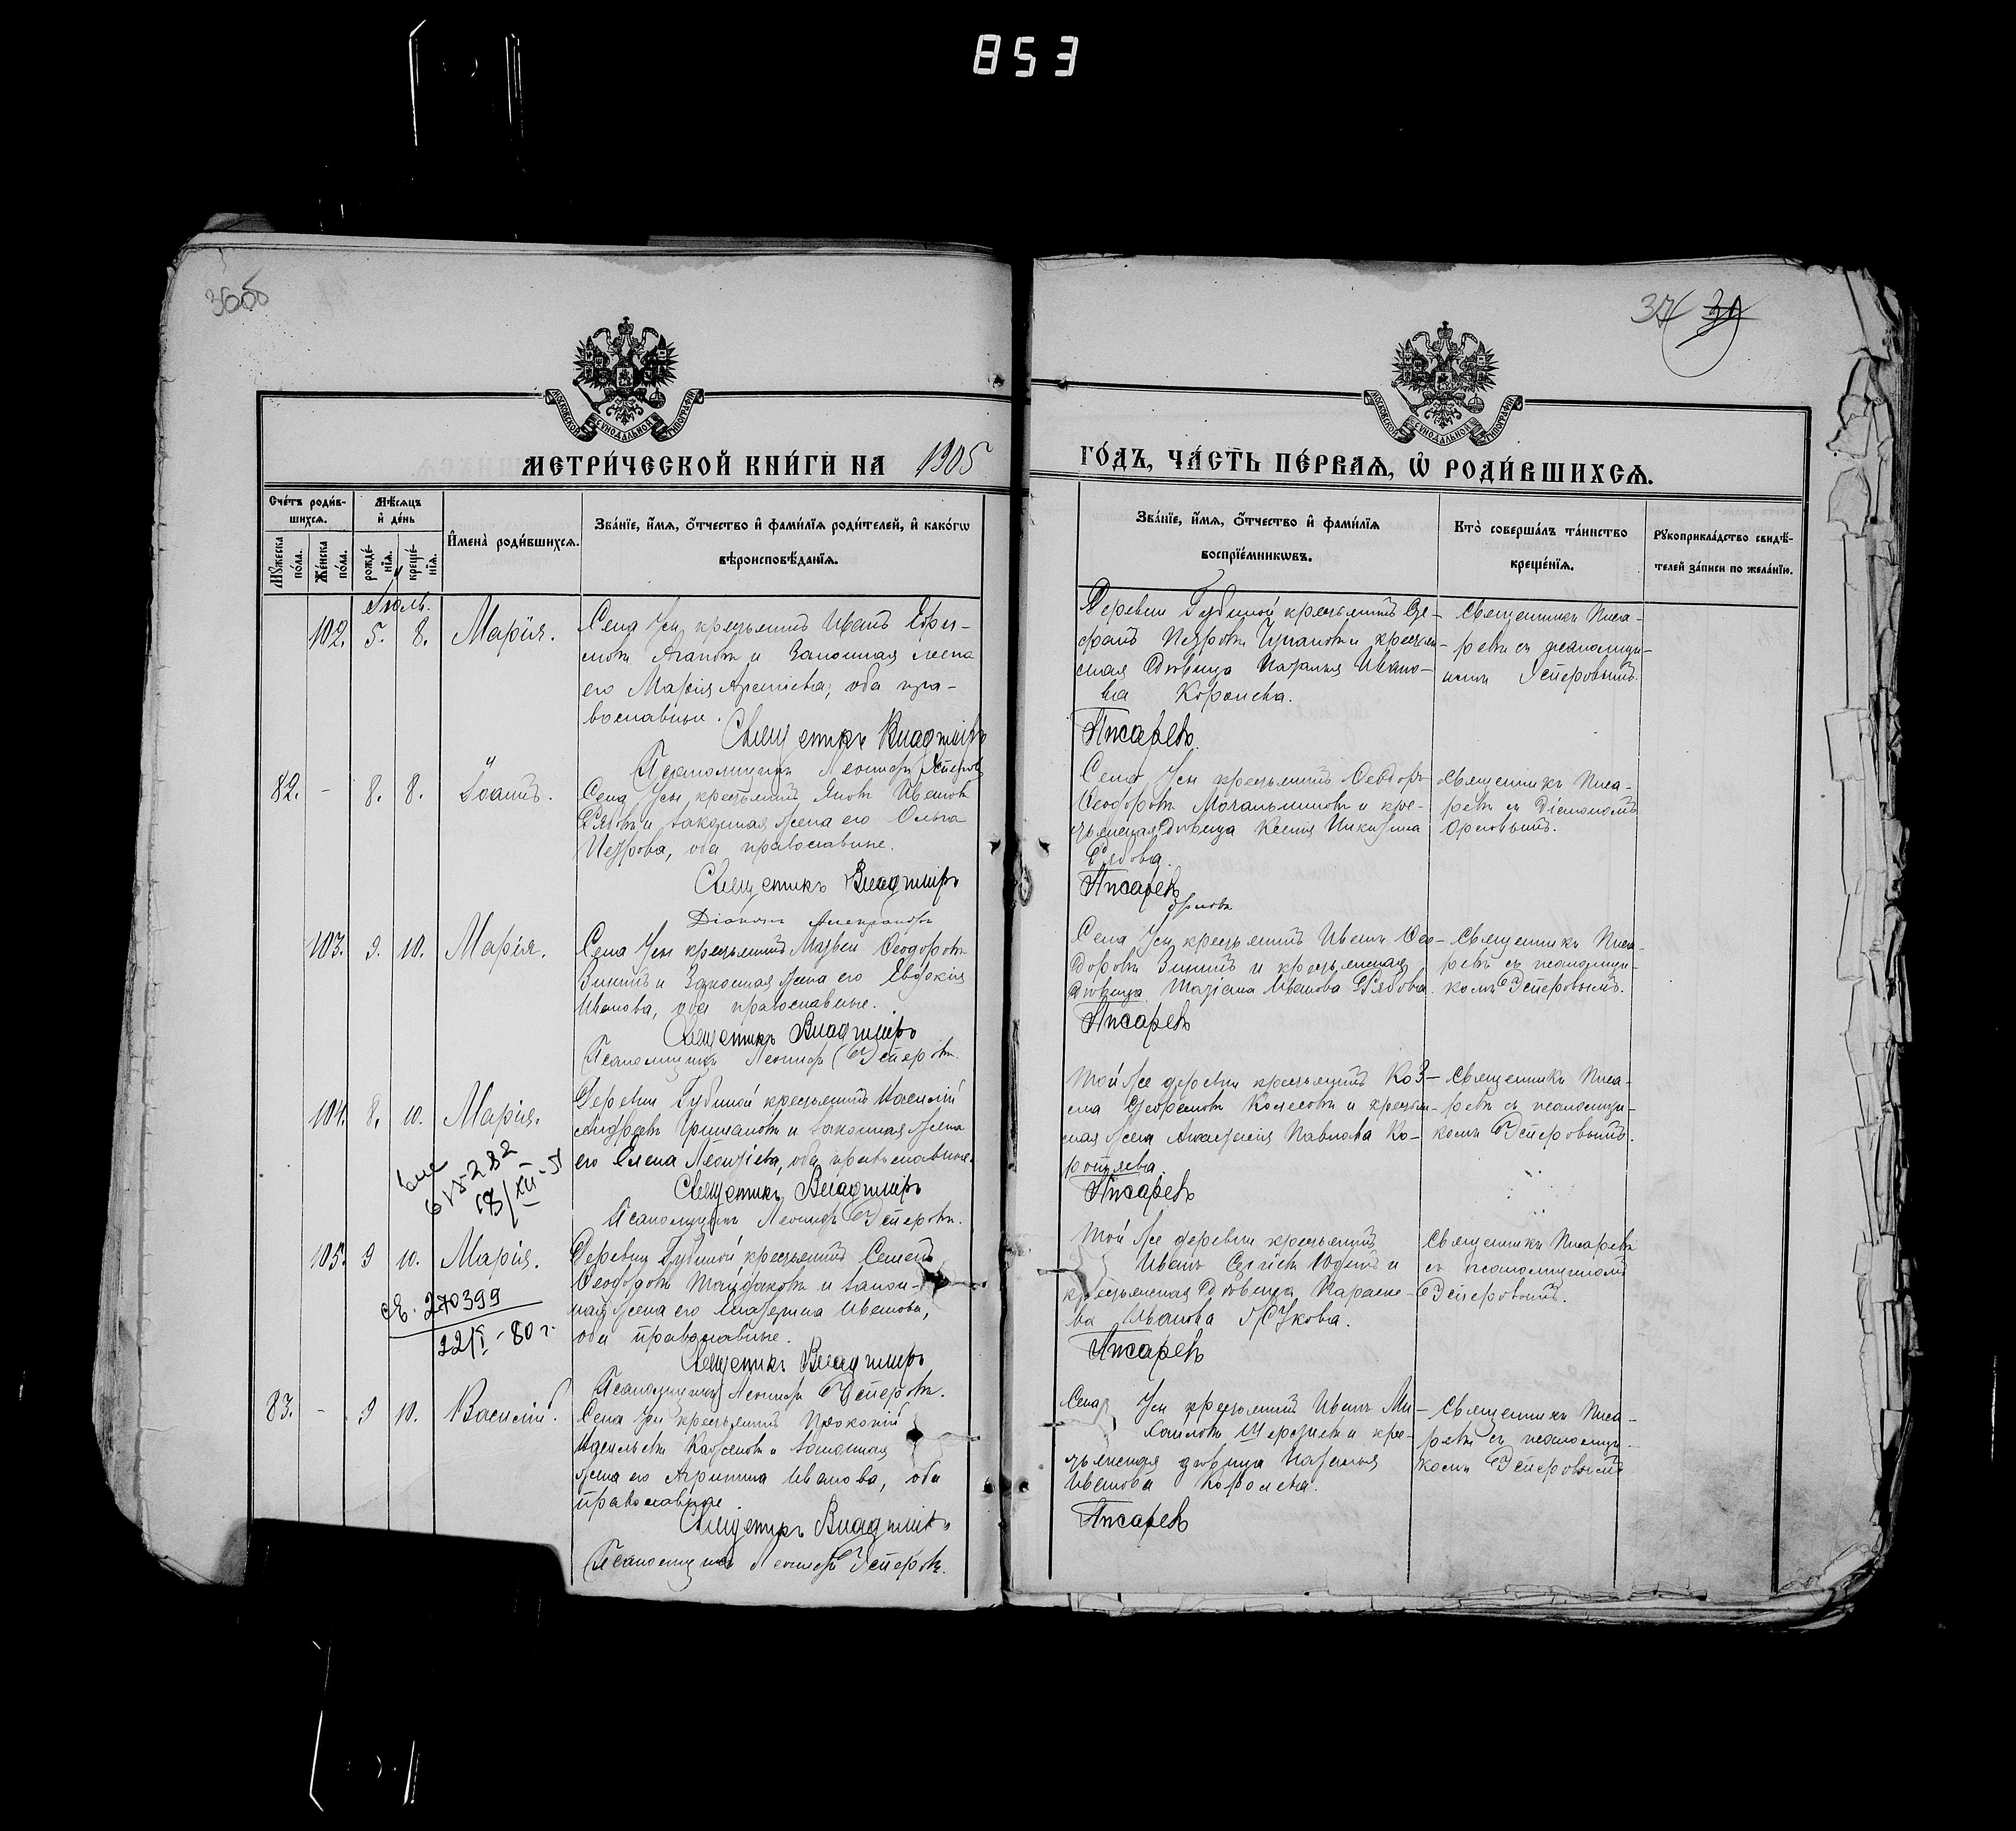 853
36об
37
МОСКОВСКОЙ СѴНОДАЛЬНОЙ ТИПОГРАФІИ
МОСКОВСКОЙ СѴНОДАЛЬНОЙ ТИПОГРАФІИ
МЕТРИ́ЧЕСКОЙ КНИ́ГИ НА 1905
ГО́ДЪ, ЧА́СТЬ ПЕ́РВАѦ, Ѡ РОДИ́ВШИХСѦ.
Сче́тъ роди́в-
шихсѧ.
Мꙋ́жеска по́ла.
Же́нска по́ла.
Мѣ́сѧцъ
и҆ де́нь
рожде́-
нїѧ.
креще́-
нїѧ.
И҆мена̀ роди́вшихсѧ.
Зва́нїе, и҆́мѧ, ѻ҆́тчество и҆ фами́лїѧ роди́телей, и҆ како́гѡ
вѣроисповѣ́данїѧ.
Зва́нїе, и҆́мѧ, ѻ҆́тчество и҆ фами́лїѧ
воспрїе́мникѡвъ.
Кто̀ соверша́лъ та́инство
креще́нїѧ.
Рꙋкоприкла́дство свидѣ́-
телей за́писи по жела́нїю.
Іюль.
102. 5. 8. Марія.
Села Усы крестьянинъ Иванъ Ефре-
мовъ Агаповъ и законная жена
его Марія Арсеніева, оба пра-
вославные.
Священникъ Владиміръ
Псаломщикъ Леонидъ Эсперовъ
Деревни Губиной крестьянинъ Сте-
фанъ Петровъ и крестьян-
ская дѣвица Наталья Ивано-
ва Королева.
Писаревъ
Священникъ Писа-
ревъ съ псаломщи-
комъ Эсперовымъ.
82. - 8. 8. Іоаннъ.
Села Усы крестьянинъ Яковъ Ивановъ
Рябовъ и законная жена его Ольга
Петрова, оба православные.
Священникъ Владиміръ
Діаконъ Александръ
Села Усы крестьянинъ Ѳеодоръ
Ѳеодоровъ Мочальниковъ и кре-
стьянская дѣвица Ксенія Никитина
Рябова.
Писаревъ
Орловъ
Священникъ Писа-
ревъ съ діакономъ
Орловымъ.
103. 9. 10. Марія.
Села Усы крестьянинъ Матвей Ѳеодоровъ
Зининъ и законная жена его Евдокія
Иванова, оба православные.
Священникъ Владиміръ
Псаломщикъ Леонидъ Эсперовъ.
Села Усы крестьянинъ Иванъ Ѳео-
доровъ Зининъ и крестьянская
дѣвица Татіана Иванова Рябова.
Писаревъ
Священникъ Писа-
ревъ съ псаломщи-
комъ Эсперовымъ.
104. 8. 10. Марія.
Деревни Губиной крестьянинъ Василій
Андреевъ и законная жена
его Елена Леонтіева, оба православные.
Священникъ Владиміръ
Псаломщикъ Леонидъ Эсперовъ.
Той же деревни крестьянинъ Коз-
ма Колесовъ и крестьян-
ская жена Анастасія Павлова Ко-
Писаревъ
Священникъ Писа-
ревъ съ псаломщи-
комъ Эсперовымъ.
615282
18/XII
105. 9 10. Марія.
Деревни Губиной крестьянинъ Семенъ
Ѳеодоровъ и закон-
ная жена его Екатерина Иванова,
оба православные.
Священникъ Владиміръ
Псаломщикъ Леонидъ Эсперовъ.
Той же деревни крестьянинъ
Иванъ Сергѣевъ Юдинъ и
крестьянская дѣвица Параске-
ва Иванова Жукова.
Писаревъ
Священникъ Писаревъ
съ псаломщикомъ
Эсперовымъ.
270399
22/I-80 г.
83. - 9 10. Василій.
Села Усы крестьянинъ Прокопій
Васильевъ и законная
жена его Агриппина Иванова, оба
православные.
Священникъ Владиміръ
Псаломщикъ Леонидъ Эсперовъ.
Села Усы крестьянинъ Иванъ Ми-
хайловъ и кре-
стьянская дѣвица Наталья
Иванова Королева.
Писаревъ
Священникъ Писа-
ревъ съ псаломщи-
комъ Эсперовымъ